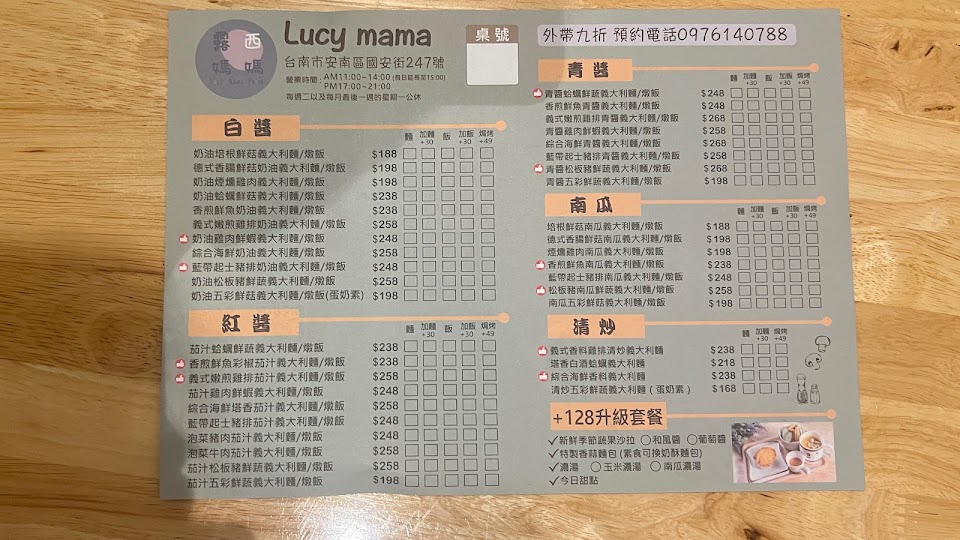 露西媽媽
Lucy mama
台南市安南區國安街247號
營業時間：AM11:00~14:00 (假日延長至15:00)
PM17:00~21:00
每週二以及每月最後一週的星期一公休
桌號
外帶九折 預約電話0976140788
白醬
麵 加麵+30 飯 加飯+30 焗烤+49
奶油培根鮮菇義大利麵/燉飯 $188
德式香腸鮮菇奶油義大利麵/燉飯 $198
奶油煙燻雞肉義大利麵/燉飯 $198
奶油蛤蠣鮮菇義大利麵/燉飯 $238
香煎鮮魚奶油義大利麵/燉飯 $238
義式嫩煎雞排奶油義大利麵/燉飯 $258
奶油雞肉鮮蝦義大利麵/燉飯 $248
綜合海鮮奶油義大利麵/燉飯 $258
藍帶起士豬排奶油義大利麵/燉飯 $248
奶油松板豬鮮菇義大利麵/燉飯 $258
奶油五彩鮮菇義大利麵/燉飯(蛋奶素) $198
紅醬
麵 加麵+30 飯 加飯+30 焗烤+49
茄汁蛤蠣鮮蔬義大利麵/燉飯 $238
香煎鮮魚彩椒茄汁義大利麵/燉飯 $238
義式嫩煎雞排茄汁義大利麵/燉飯 $258
茄汁雞肉鮮蝦義大利麵/燉飯 $248
綜合海鮮塔香茄汁義大利麵/燉飯 $258
藍帶起士豬排茄汁義大利麵/燉飯 $248
泡菜豬肉茄汁義大利麵/燉飯 $258
泡菜牛肉茄汁義大利麵/燉飯 $258
茄汁松板豬鮮蔬義大利麵/燉飯 $258
茄汁五彩鮮蔬義大利麵/燉飯 $198
青醬
麵 加麵+30 飯 加飯+30 焗烤+49
青醬蛤蠣鮮蔬義大利麵/燉飯 $248
香煎鮮魚青醬義大利麵/燉飯 $248
義式嫩煎雞排青醬義大利麵/燉飯 $268
青醬雞肉鮮蝦義大利麵/燉飯 $258
綜合海鮮青醬義大利麵/燉飯 $268
藍帶起士豬排青醬義大利麵/燉飯 $258
青醬松板豬鮮蔬義大利麵/燉飯 $268
青醬五彩鮮蔬義大利麵/燉飯 $198
南瓜
麵 加麵+30 飯 加飯+30 焗烤+49
培根鮮菇南瓜義大利麵/燉飯 $188
德式香腸鮮菇南瓜義大利麵/燉飯 $198
煙燻雞肉南瓜義大利麵/燉飯 $198
香煎鮮魚南瓜義大利麵/燉飯 $238
藍帶起士豬排南瓜義大利麵/燉飯 $248
松板豬南瓜鮮菇義大利麵/燉飯 $258
南瓜五彩鮮菇義大利麵/燉飯 $198
清炒
麵 加麵+30 焗烤+49
義式香料雞排清炒義大利麵 $238
塔香白酒蛤蠣義大利麵 $218
綜合海鮮香料義大利麵 $238
清炒五彩鮮蔬義大利麵（蛋奶素） $168
+128升級套餐
✓新鮮季節蔬果沙拉 ○和風醬 ○葡萄醬
✓特製香蒜麵包 (素食可換奶酥麵包)
✓濃湯 ○玉米濃湯 ○南瓜濃湯
✓今日甜點